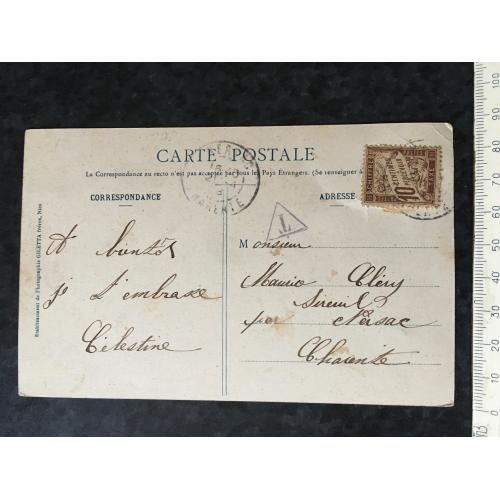 CARTE POSTALE
La Correspondance au recto n'est pas acceptée par tous les Pays Etrangers. (Se renseigner à
CORRESPONDANCE
ADRESSE
A bientôt
je t'embrasse
Célestine
Monsieur
Maurice Cléry
Sireuil
par Nersac
Charente
Etablissement de Photographie GILETTA frères, Nice
CHARENTE
T
10
CENTIMES
A PERCEVOIR
0 10 20 30 40 50 60 70 80 90 100